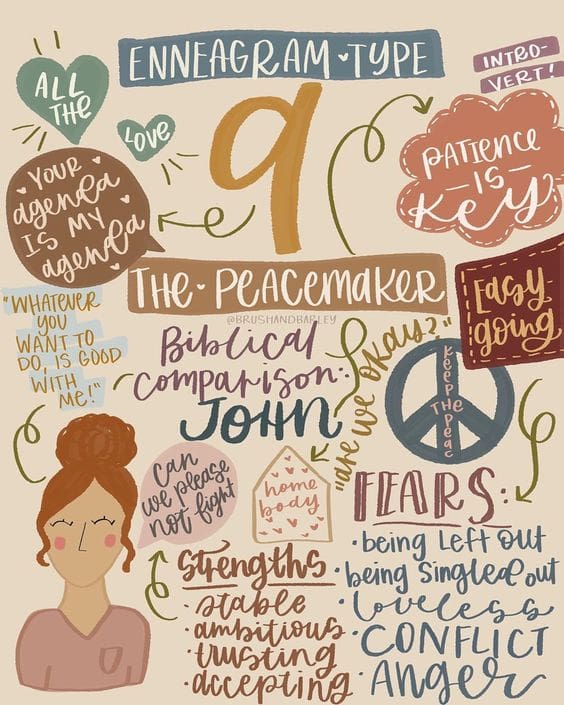 ENNEAGRAM TYPE
9
INTRO-
VERT!
ALL
THE
LOVE
PATIENCE
- IS -
Key
YOUR
agenda
IS MY
agenda
THE PEACEMAKER
@BRUSHANDBARLEY
Easy
going
"WHATEVER
YOU
WANT TO
DO, IS GOOD
WITH
ME!"
Biblical
comparison:
JOHN
"are we okay?"
KEEP THE PEAC
can
we please
not fight
home
body
FEARS:
• being Left out
• being Singled out
• loveless
• CONFLICT
• Anger
Strengths
• stable
• ambitious
• trusting
• accepting